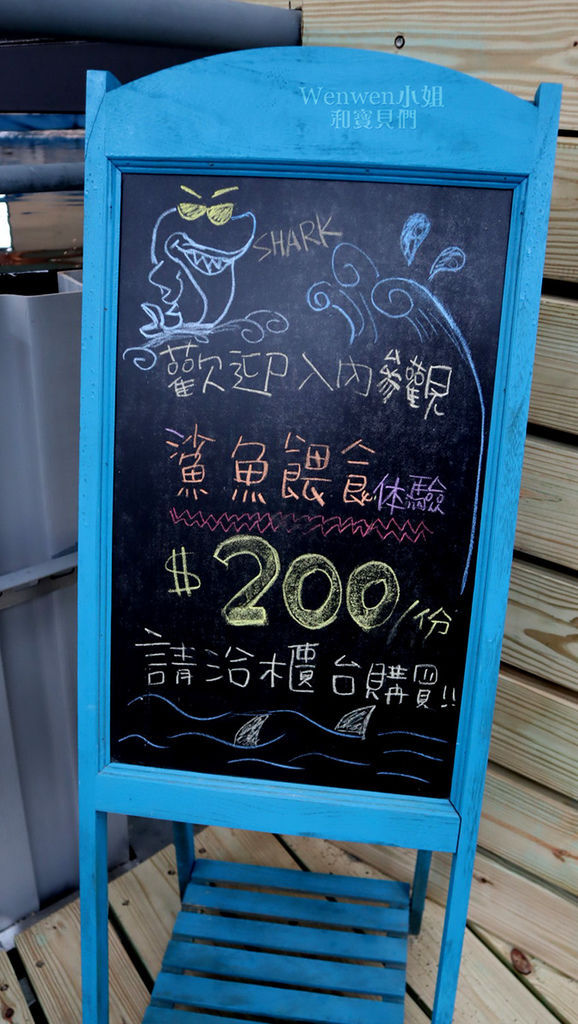 Wenwen小姐
和寶貝們
SHARK
歡迎入內參觀
鯊魚餵食体驗
$200/份
請洽櫃台購買!!